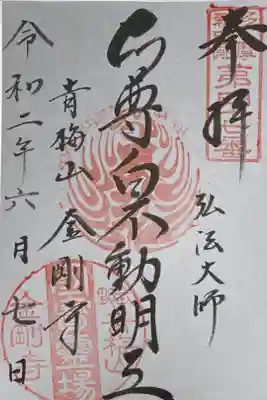 奉拝
弘法大師
本尊白不動明王
青梅山 金剛寺
令和二年六月七日
金剛寺